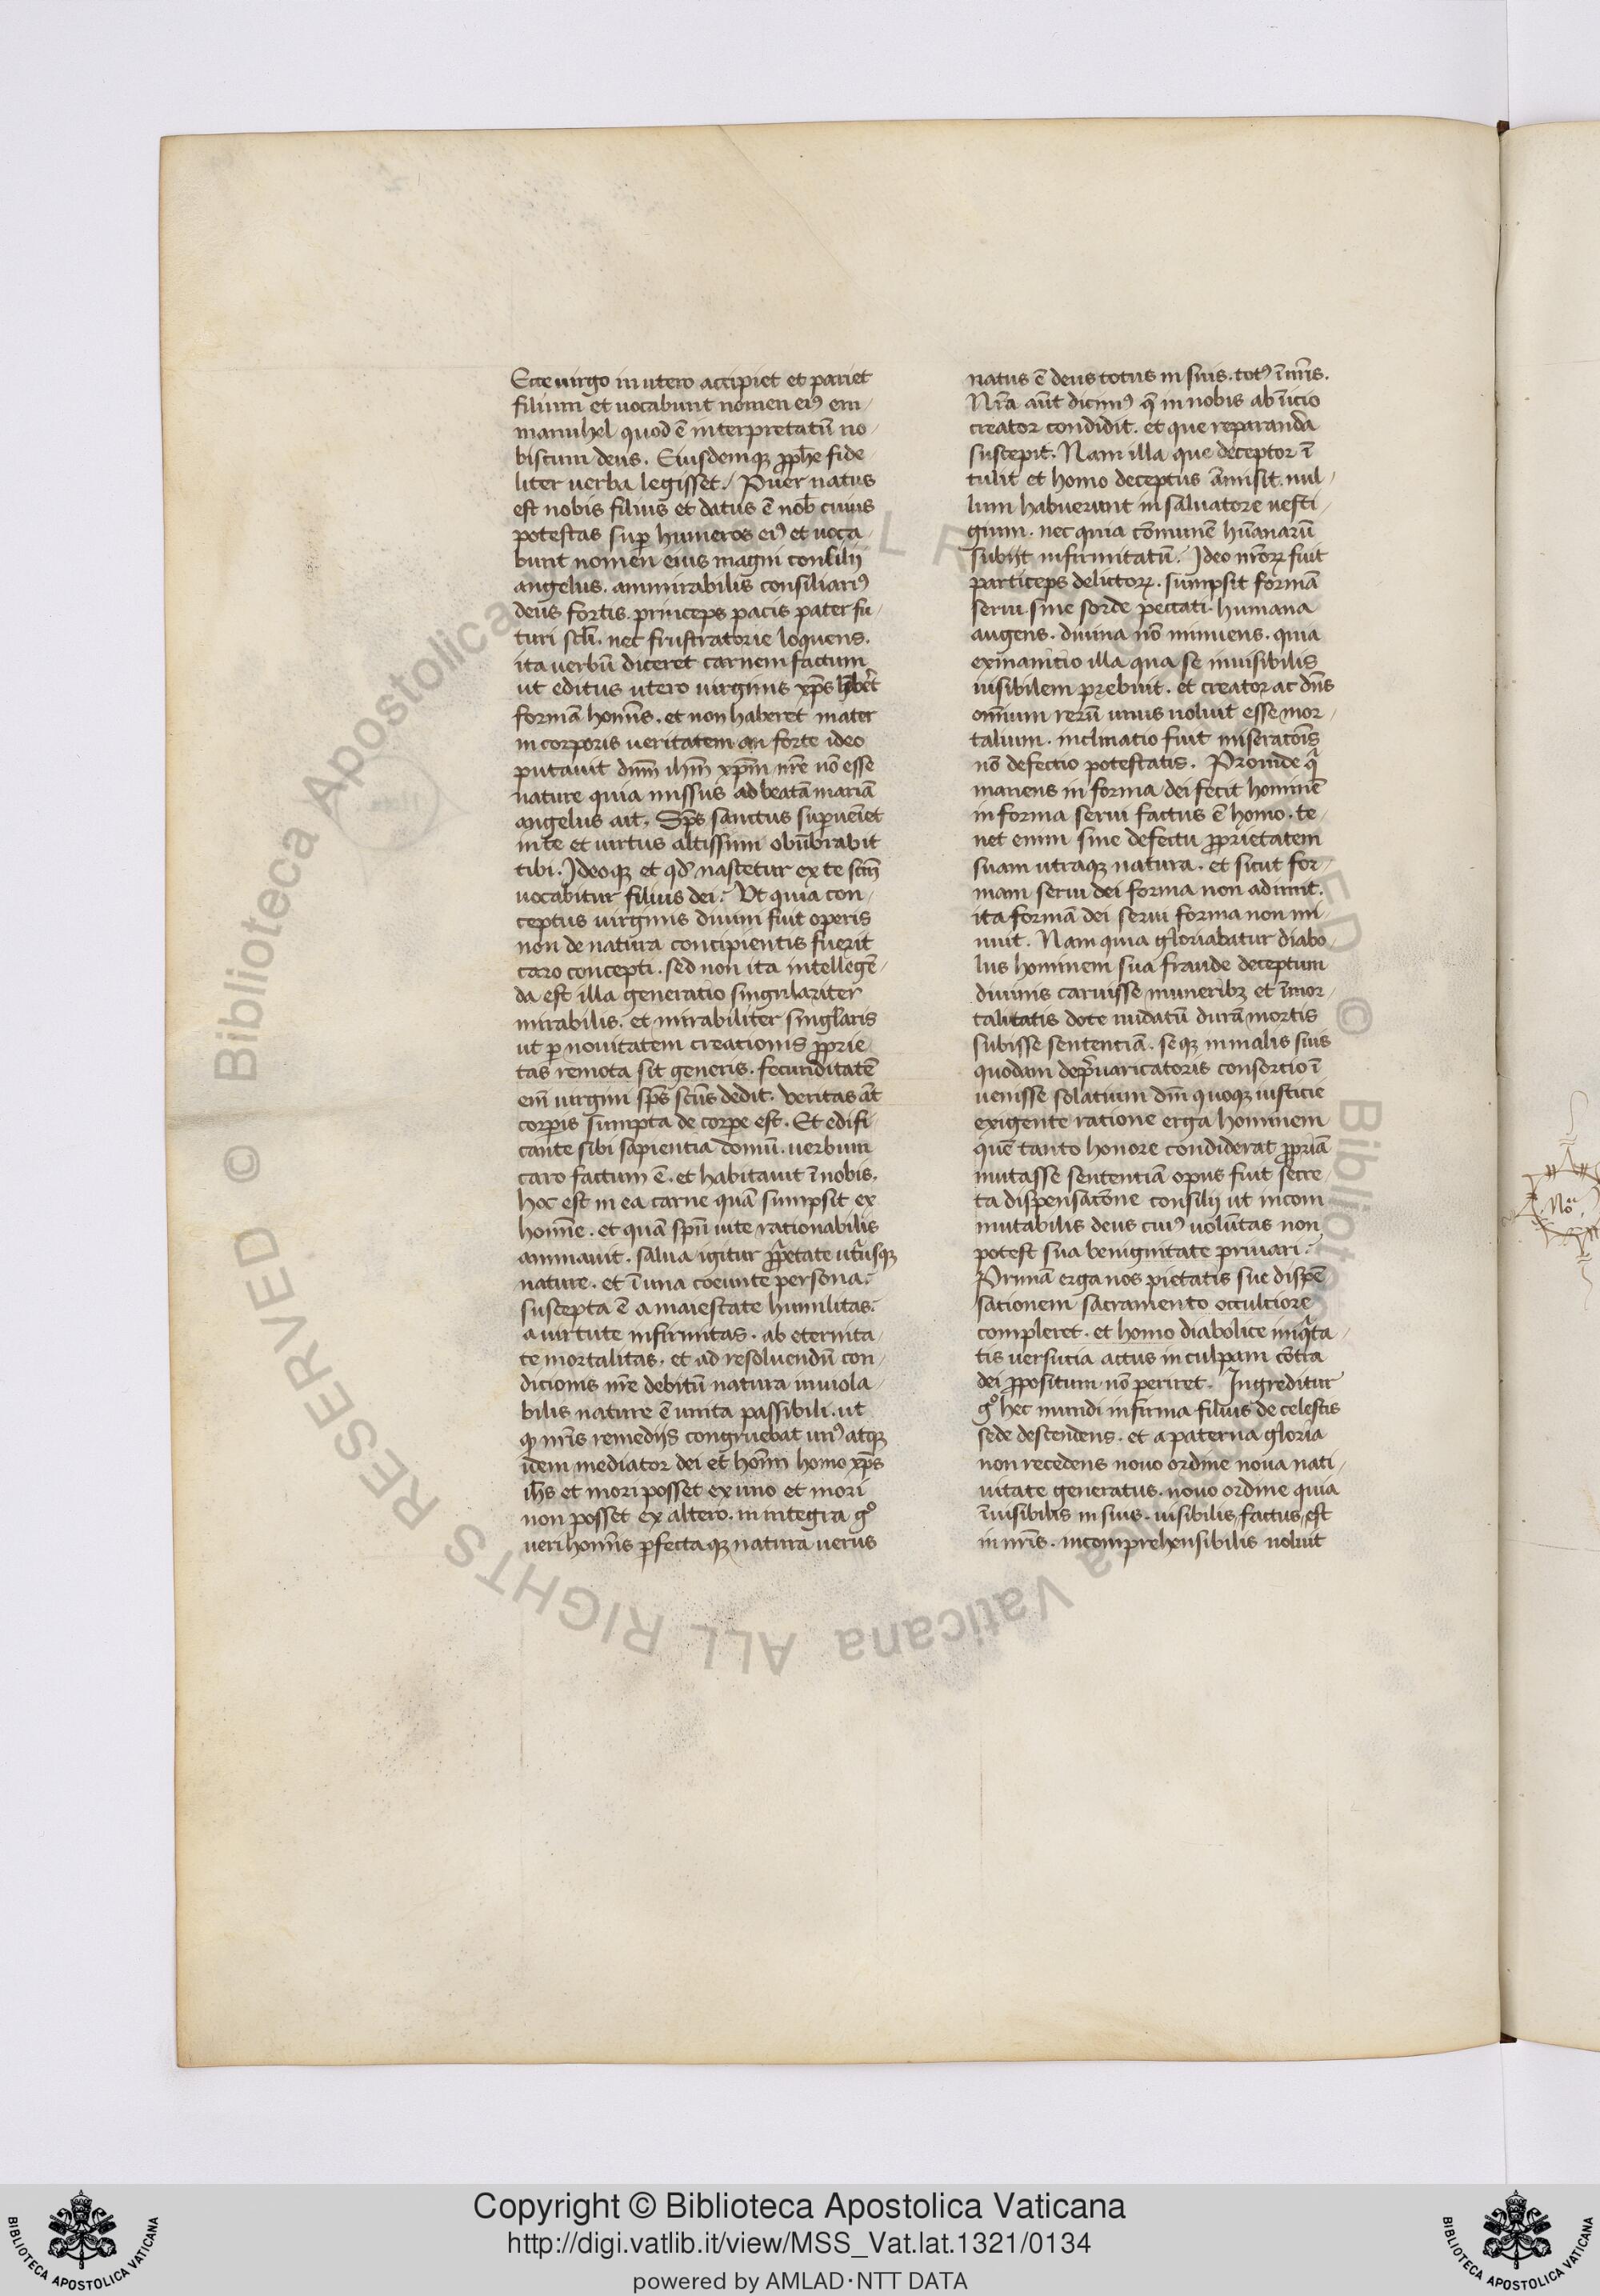 Ecce uirgo in utero accipiet et pariet
filium et uocabunt nomen eiꝰ em
manuhel quod ē interpretatū no
biscum deus. Eiusdemqꝫ ꝓphe fide
liter uerba legisset. Puer natus
est nobis filius et datus ē nob cuius
potestas suꝑ humeros eiꝰ et uoca
bunt nomen eius magni consilij
angelus. ammirabilis consiliariꝰ
deus fortis. princeps pacis pater fu
turi scli. nec frustratorie loquens.
ita uerbū diceret carnem factum
ut editus utero uirginis xp̄s hēret
formā homīs. et non haberet mater
in corporis ueritatem an forte ideo
putauit dn̄m ih̄m xp̄m nr̄e nō esse
nature quia missus ad beatā mariā
angelus ait. Sp̄s sanctus suꝑueniet
in te et uirtus altissimi obūbrabit
tibi. Ideoqꝫ et qd̓ nascetur ex te scm̄
uocabitur filius dei. Vt quia con
ceptus uirginis diuini fuit operis
non de natura concipientis fuerit
caro concepti. sed non ita intellegē
da est illa generatio singulariter
mirabilis. et mirabiliter singl̄aris
ut ꝑ nouitatem creationis ꝓprie
tas remota sit generis. fecunditatē
em̄ uirgini sp̄s sc̄us dedit. ueritas aūt
corꝑis sumpta de corꝑe est. Et edifi
cante sibi sapientia domū. uerbum
caro factum ē. et habitauit ī nobis.
hoc est in ea carne quā sumpsit ex
homīe. et quā spū uite rationabilis
animauit. salua igitur ꝓprietate utriusqꝫ
nature. et ī una coeunte persona.
suscepta ē a maiestate humilitas.
a uirtute infirmitas. ab eternita
te mortalitas. et ad resoluendū con
dicionis nr̄e debitū natura inuiola
bilis nature ē unita passibili. ut
qꝫ nr̄is remedijs congruebat unꝰ atqꝫ
idem mediator dei et hoīm homo xp̄s
ih̄s et mori posset ex uno et mori
non posset ex altero. in integra gͦ
ueri homīs ꝑfectaqꝫ natura uerus
natus ē deus totus in suis. totꝰ ī nr̄is.
Nr̄a aūt dicimꝰ q̄ in nobis ab īicio
creator condidit. et que reparanda
suscepit. Nam illa que deceptor ī
tulit et homo deceptus āmisit. nul
lum habuerunt in saluatore uesti
gium. nec quia cōmunē hūanarū
subijt infirmitatū. Ideo nr̄oꝝ fuit
particeps delictoꝝ. sumpsit formā
serui sine sorde peccati. humana
augens. diuina nō minuens. quia
exinanitio illa qua se inuisibilis
uisibilem prebuit. et creator ac dn̄s
omīum rerū unus uoluit esse mor
talium. inclinatio fuit miseratōis
nō defectio potestatis. Proinde qͥ
manens in forma dei fecit hominē
in forma serui factus ē homo. te
net enim sine defectu ꝓprietatem
suam utraqꝫ natura. et sicut for
mam serui dei forma non adimit.
ita formā dei serui forma non mi
nuit. Nam quia gloriabatur diabo
lus hominem sua fraude deceptum
diuinis caruisse muneribꝫ et īmor
talitatis dote nudatū durā mortis
subisse sententiā. seqꝫ in malis suis
quodam de p̄uaricatoris consortio ī
uenisse solatium dm̄ quoqꝫ iusticie
exigente ratione erga hominem
quē tanto honore condiderat ꝓpriā
mutasse sententiā opus fuit secre
ta dispensatōne consilij ut incom
mutabilis deus cuiꝰ uolūtas non
potest sua benignitate priuari.
Primā erga nos pietatis sue dispē
sationem sacramento occultiore
compleret. et homo diabolice iniqͥta
tis uersutia actus in culpam cōtra
dei ꝓpositum nō periret. Ingreditur
gͦ hec mundi infirma filius de celestis
sede descendens. et a paterna gloria
non recedens nouo ordine noua nati
uitate generatus. nouo ordine quia
īuisibilis in suis. uisibilis factus est
in nr̄is. incomprehensibilis uoluit
No.
Copyright © Biblioteca Apostolica Vaticana
http://digi.vatlib.it/view/MSS_Vat.lat.1321/0134
powered by AMLAD·NTT DATA
BIBLIOTECA APOSTOLICA VATICANA
BIBLIOTECA APOSTOLICA VATICANA
© Biblioteca Apostolica Vaticana ALL RIGHTS RESERVED